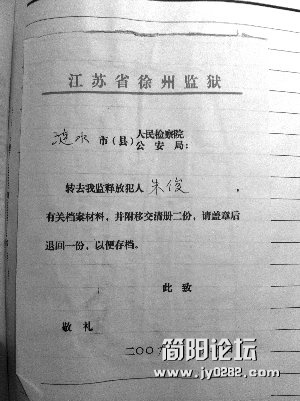 江苏省徐州监狱
涟水市(县)人民检察院
公安局:
转去我监释放犯人朱俊,
有关档案材料,并附移交清册二份,请盖章后
退回一份,以便存档。
此致
敬礼
二〇〇
简阳论坛
www.jy0282.com